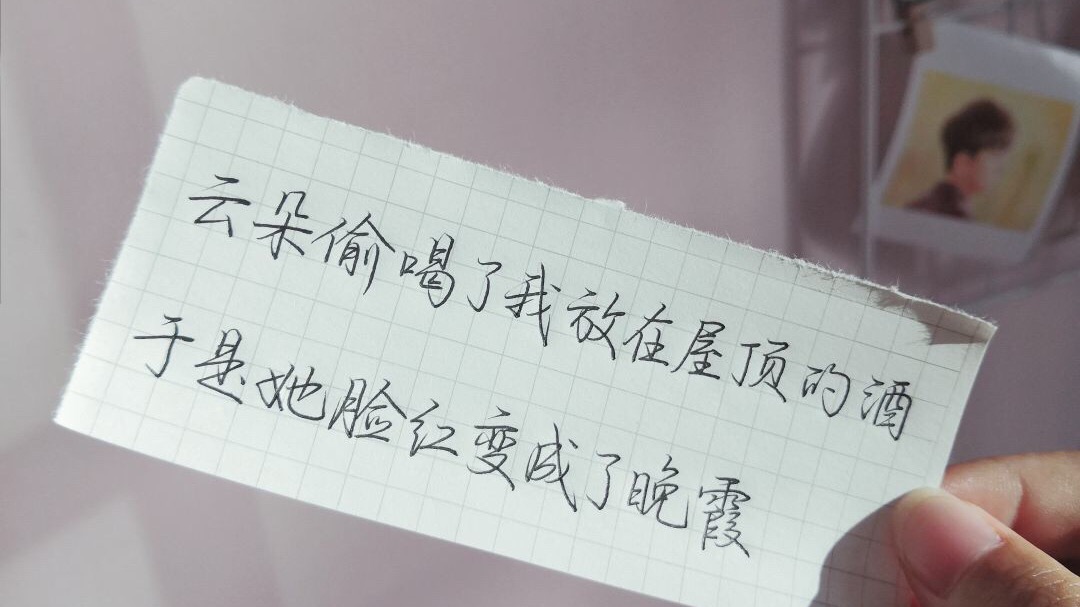 云朵偷喝了我放在屋顶的酒
于是她脸红变成了晚霞